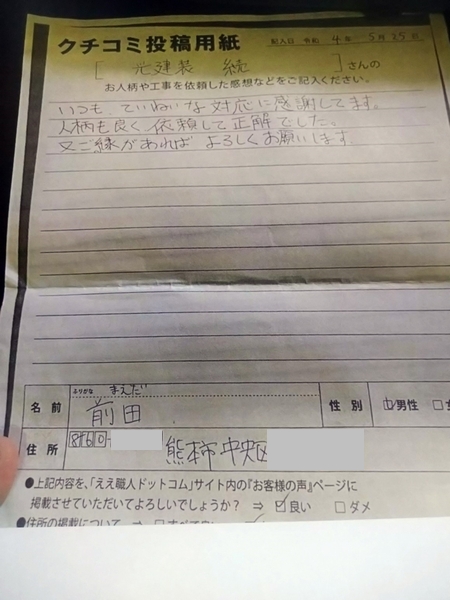 クチコミ投稿用紙
記入日 令和 4年 5月 25日
[ 光建装 続 ] さんの
お人柄や工事を依頼した感想などをご記入ください。
いつも ていねいな対応に感謝してます。
人柄も良く依頼して正解でした。
又ご縁があれば よろしくお願いします
ふりがな まえだ
名前 前田 性別 ☑男性 □
住所 860- 熊本市中央区
●上記内容を、「ええ職人ドットコム」サイト内の『お客様の声』ページに
掲載させていただいてよろしいでしょうか？ ⇒ ☑良い □ダメ
●住所の掲載について ⇒